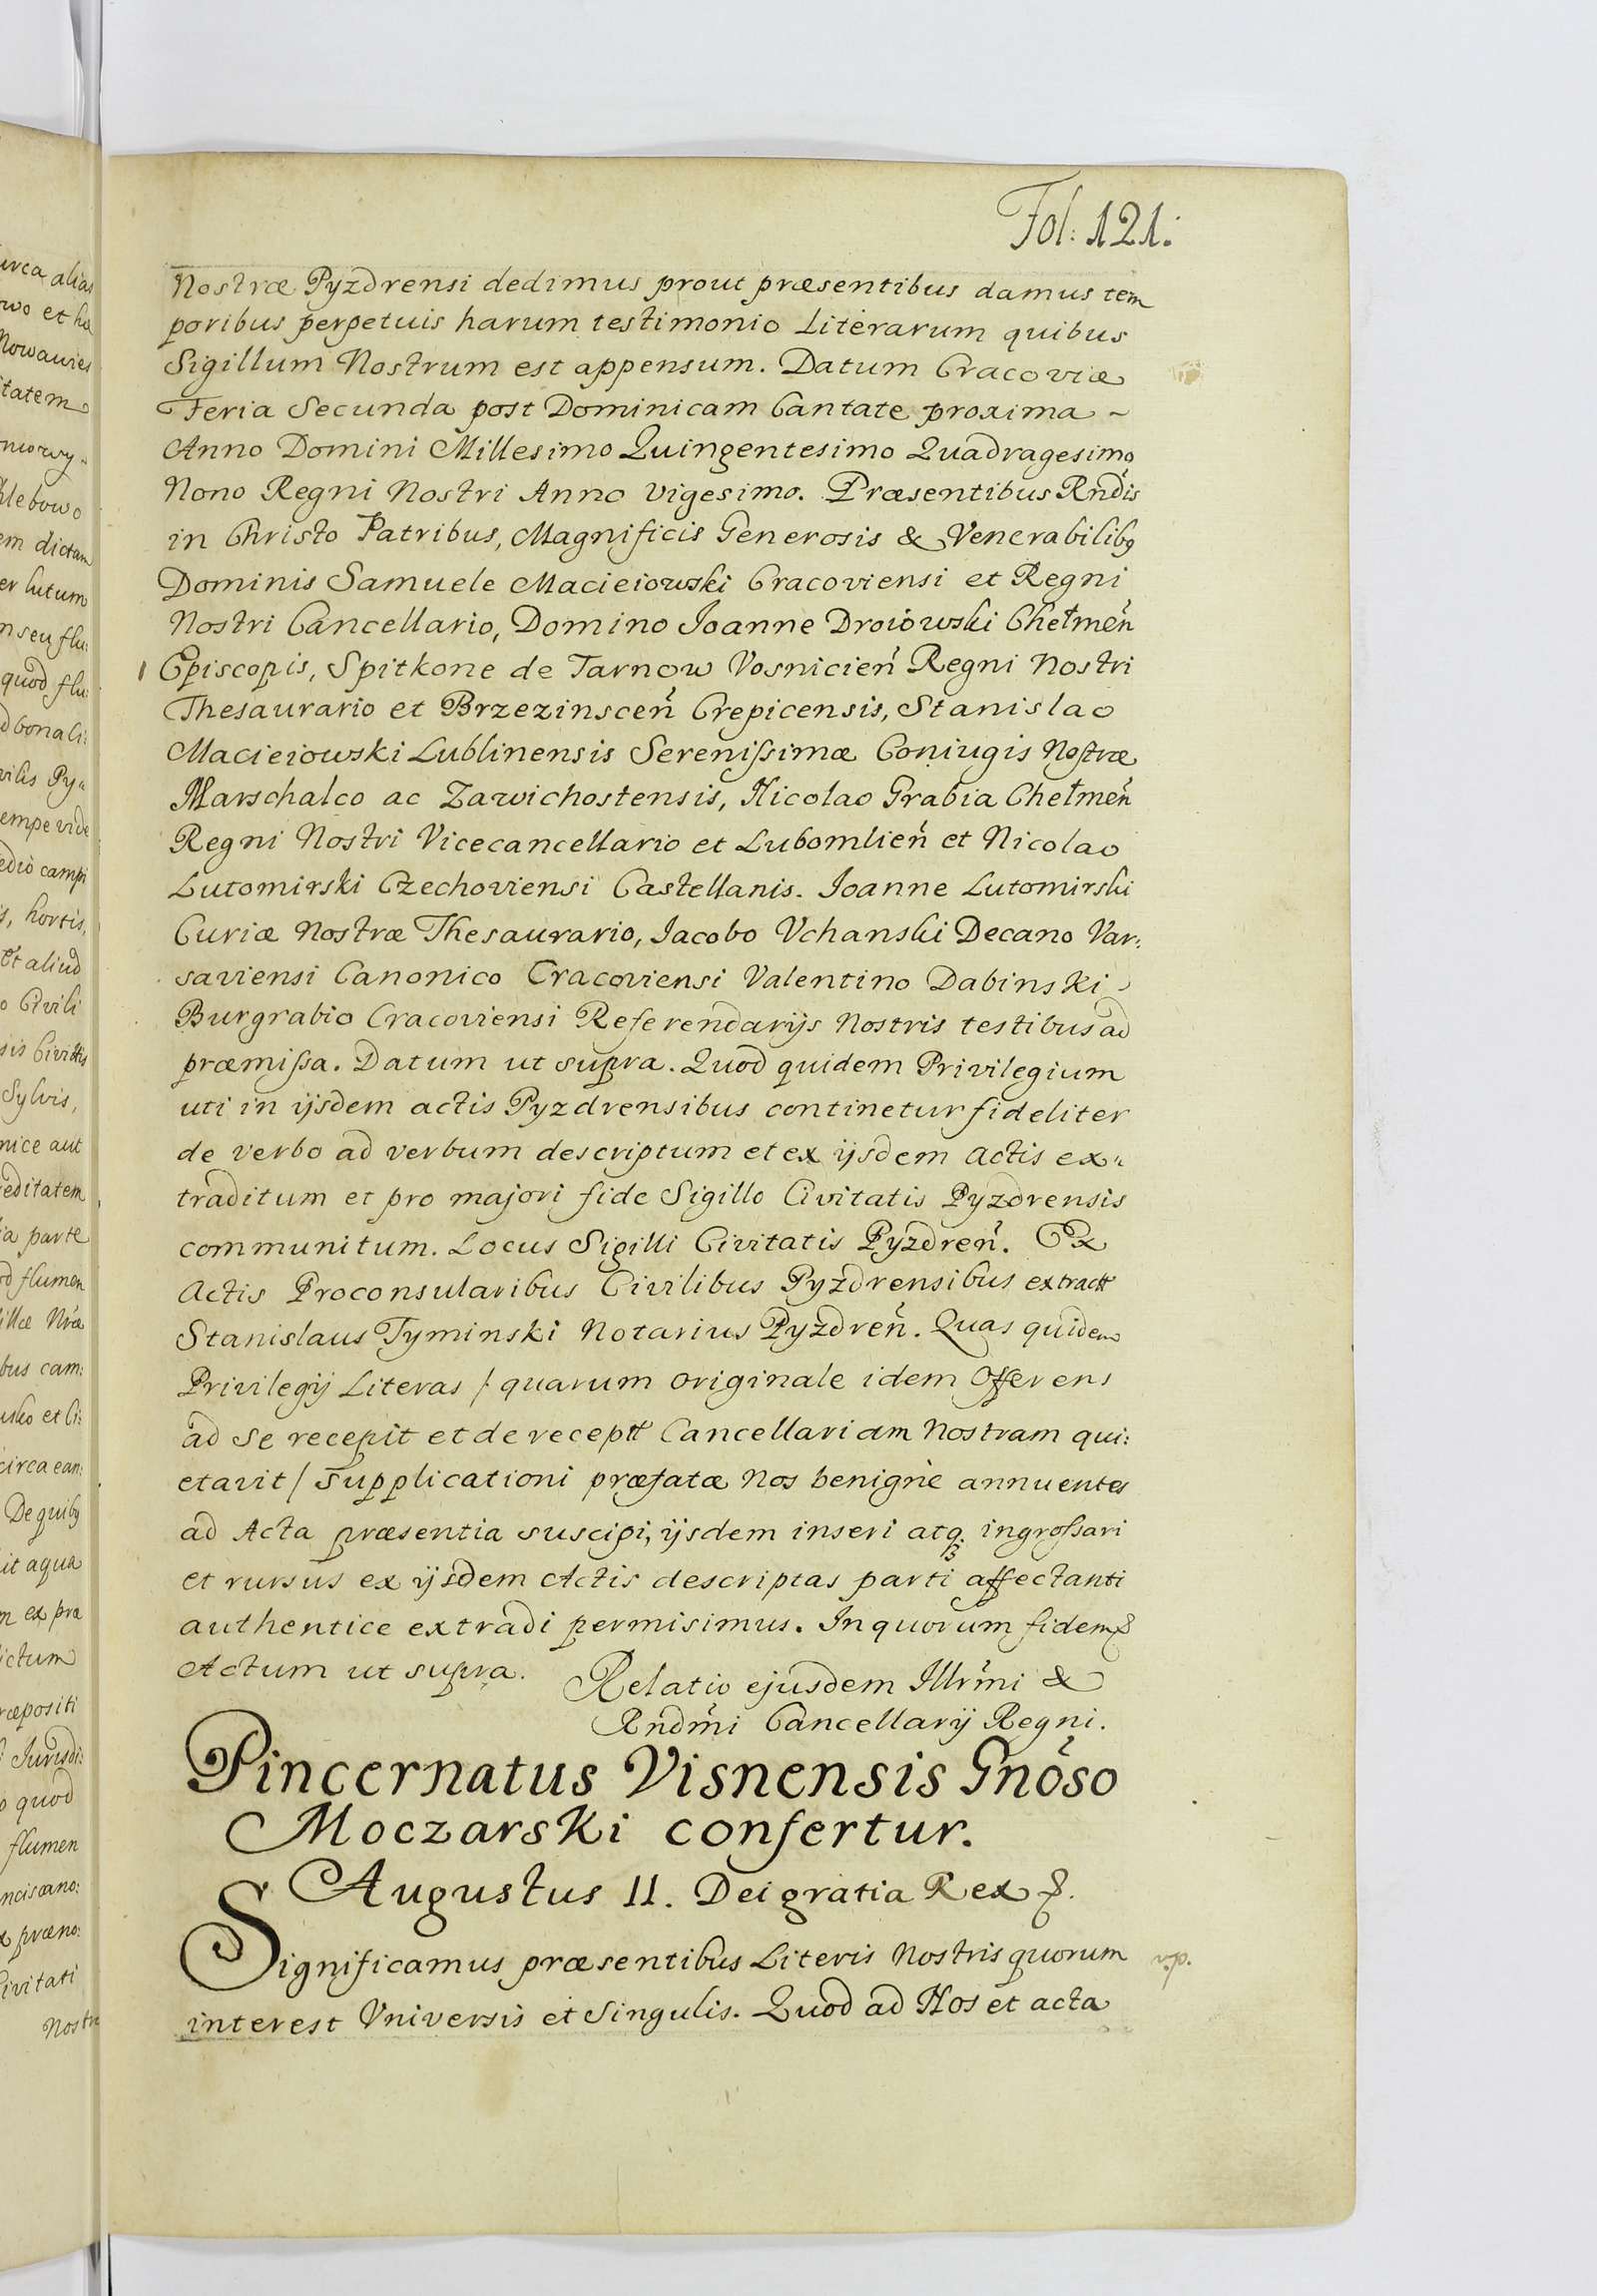 Fol: 121.
Nostræ Pyzdrensi dedimus prout præsentibus damus tem
poribus perpetuis harum testimonio Literarum quibus
Sigillum Nostrum est appensum. Datum Cracoviæ
Feria Secunda post Dominicam Cantate proxima ~
Anno Domini Millesimo Quingentesimo Quadragesimo
Nono Regni Nostri Anno vigesimo. Præsentibus Rndis
in Christo Patribus, Magnificis Generosis & Venerabilibq
Dominis Samuele Macieiowski Cracoviensi et Regni
Nostri Cancellario, Domino Joanne Droiowski Chełmeń
Episcopis, Spitkone de Tarnow Vosnicień Regni Nostri
Thesaurario et Brzezinsceń Crepicensis, Stanislao
Macieiowski Lublinensis Serenissimæ Coniugis Nostræ
Marschalco ac Zawichostensis, Nicolao Grabia Chełmeń
Regni Nostri Vicecancellario et Lubomlień et Nicolao
Lutomirski Czechoviensi Castellanis. Joanne Lutomirski
Curiæ Nostræ Thesaurario, Jacobo Vchanski Decano Var:
saviensi Canonico Cracoviensi Valentino Dabinski
Burgrabio Cracoviensi Referendarijs Nostris testibus ad
præmissa. Datum ut supra. Quod quidem Privilegium
uti in ijsdem actis Pyzdrensibus continetur fideliter
de verbo ad verbum descriptum et ex ijsdem actis ex:
traditum et pro majori fide Sigillo Civitatis Pyzdrensis
communitum. Locus Sigilli Civitatis Pyzdreń. Ex
Actis Proconsularibus Civilibus Pyzdrensibus extractt
Stanislaus Tyminski Notarius Pyzdreń. Quas quidem
Privilegij Literas / quarum originale idem Offerens
ad se recepit et de receptt Cancellariam Nostram qui:
etavit / Supplicationi præfatæ Nos benigne annuentes
ad Acta præsentia suscipi, ijsdem inseri atq; ingrossari
et rursus ex ijsdem Actis descriptas parti affectanti
authentice extradi permisimus. In quorum fidem &
Actum ut supra.
Relatio ejusdem Illrmi &
Rndmi Cancellarij Regni.
Pincernatus Visnensis Gnoso
Moczarski confertur.
Augustus II. Dei gratia Rex &.
Significamus præsentibus Literis Nostris quorum
v.p.
interest Vniversis et Singulis. Quod ad Nos et acta